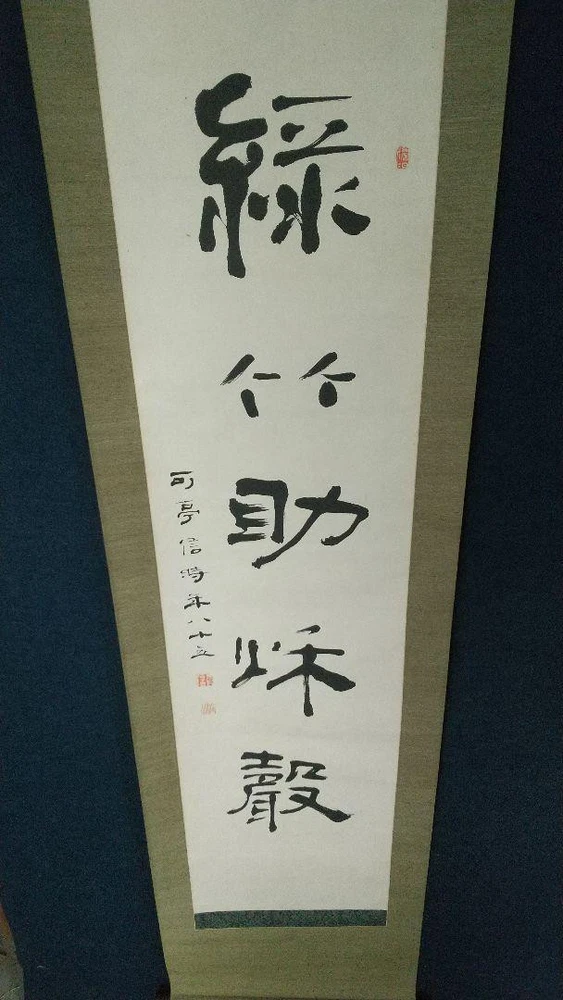 綠竹助秌聲
可亭信時年八十五